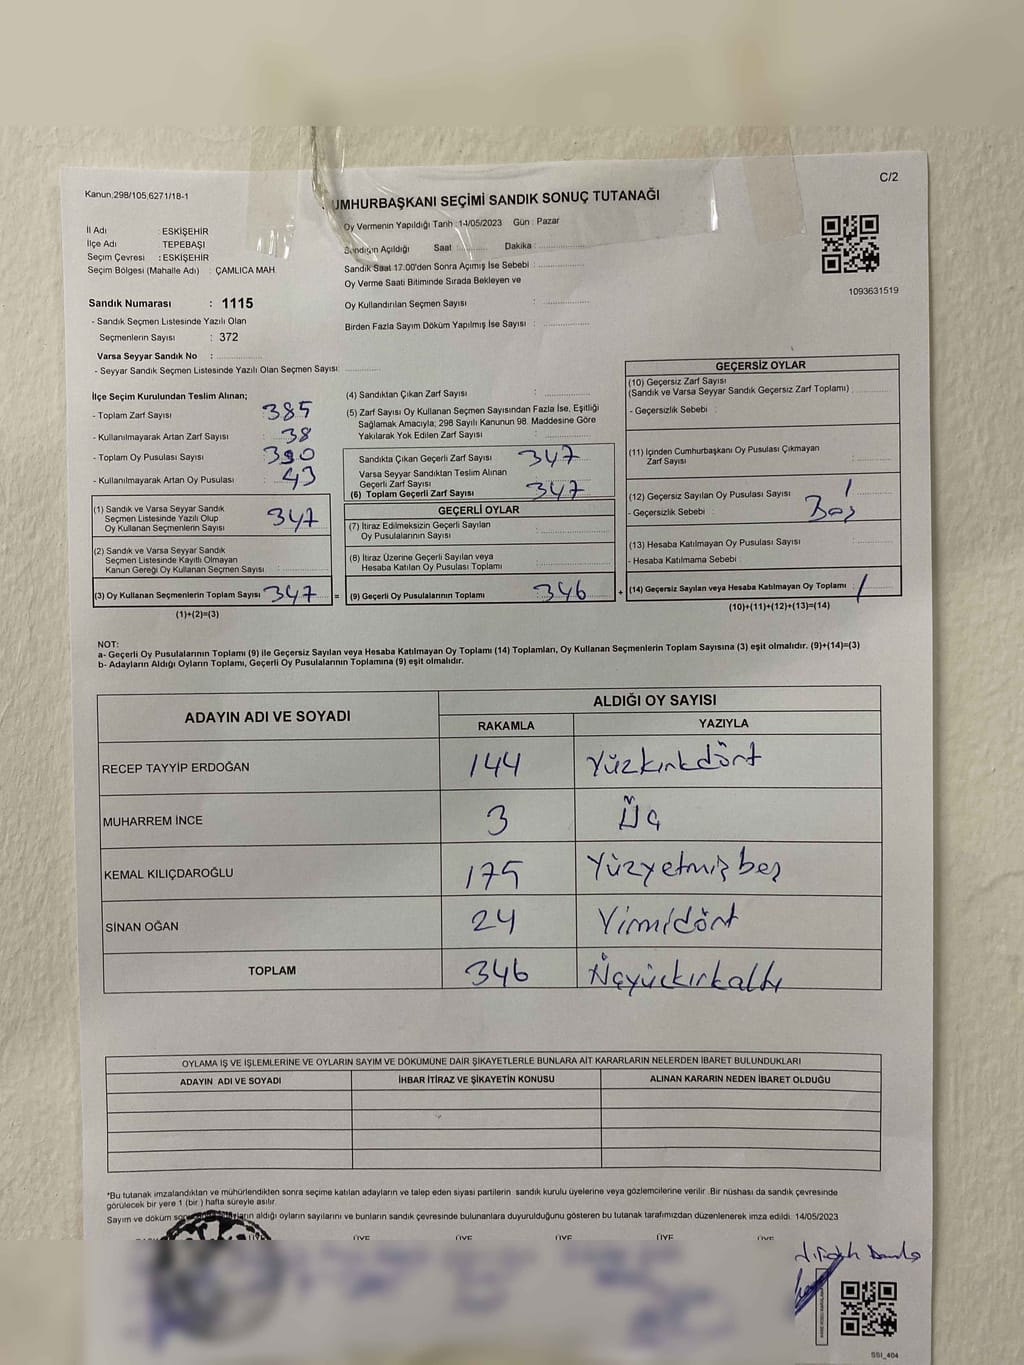 C/2
Kanun;298/105,6271/18-1
UMHURBAŞKANI SEÇİMİ SANDIK SONUÇ TUTANAĞI
İl Adı : ESKİŞEHİR
İlçe Adı : TEPEBAŞI
Seçim Çevresi : ESKİŞEHİR
Seçim Bölgesi (Mahalle Adı) : ÇAMLICA MAH.
Sandık Numarası : 1115
- Sandık Seçmen Listesinde Yazılı Olan
Seçmenlerin Sayısı : 372
Varsa Seyyar Sandık No :
- Seyyar Sandık Seçmen Listesinde Yazılı Olan Seçmen Sayısı:
Oy Vermenin Yapıldığı Tarih : 14/05/2023 Gün : Pazar
Sandığın Açıldığı Saat Dakika :
Sandık Saat 17:00'den Sonra Açımış İse Sebebi :
Oy Verme Saati Bitiminde Sırada Bekleyen ve
Oy Kullandırılan Seçmen Sayısı :
Birden Fazla Sayım Döküm Yapılmış İse Sayısı :
1093631519
İlçe Seçim Kurulundan Teslim Alınan;
- Toplam Zarf Sayısı : 385
- Kullanılmayarak Artan Zarf Sayısı : 38
- Toplam Oy Pusulası Sayısı : 390
- Kullanılmayarak Artan Oy Pusulası : 43
(1) Sandık ve Varsa Seyyar Sandık
Seçmen Listesinde Yazılı Olup
Oy Kullanan Seçmenlerin Sayısı : 347
(2) Sandık ve Varsa Seyyar Sandık
Seçmen Listesinde Kayıtlı Olmayan
Kanun Gereği Oy Kullanan Seçmen Sayısı :
(3) Oy Kullanan Seçmenlerin Toplam Sayısı : 347 =
(1)+(2)=(3)
(4) Sandıktan Çıkan Zarf Sayısı :
(5) Zarf Sayısı Oy Kullanan Seçmen Sayısından Fazla İse, Eşitliği
Sağlamak Amacıyla; 298 Sayılı Kanunun 98. Maddesine Göre
Yakılarak Yok Edilen Zarf Sayısı :
Sandıkta Çıkan Geçerli Zarf Sayısı : 347
Varsa Seyyar Sandıktan Teslim Alınan
Geçerli Zarf Sayısı :
(6) Toplam Geçerli Zarf Sayısı : 347
GEÇERLİ OYLAR
(7) İtiraz Edilmeksizin Geçerli Sayılan
Oy Pusulalarının Sayısı :
(8) İtiraz Üzerine Geçerli Sayılan veya
Hesaba Katılan Oy Pusulası Toplamı :
(9) Geçerli Oy Pusulalarının Toplamı : 346 +
GEÇERSİZ OYLAR
(10) Geçersiz Zarf Sayısı
(Sandık ve Varsa Seyyar Sandık Geçersiz Zarf Toplamı) :
- Geçersizlik Sebebi :
(11) İçinden Cumhurbaşkanı Oy Pusulası Çıkmayan
Zarf Sayısı :
(12) Geçersiz Sayılan Oy Pusulası Sayısı : 1
- Geçersizlik Sebebi : Boş
(13) Hesaba Katılmayan Oy Pusulası Sayısı :
- Hesaba Katılmama Sebebi :
(14) Geçersiz Sayılan veya Hesaba Katılmayan Oy Toplamı : 1
(10)+(11)+(12)+(13)=(14)
NOT:
a- Geçerli Oy Pusulalarının Toplamı (9) ile Geçersiz Sayılan veya Hesaba Katılmayan Oy Toplamı (14) Toplamları, Oy Kullanan Seçmenlerin Toplam Sayısına (3) eşit olmalıdır. (9)+(14)=(3)
b- Adayların Aldığı Oyların Toplamı, Geçerli Oy Pusulalarının Toplamına (9) eşit olmalıdır.
ADAYIN ADI VE SOYADI ALDIĞI OY SAYISI
RAKAMLA YAZIYLA
RECEP TAYYİP ERDOĞAN 144 Yüzkırkdört
MUHARREM İNCE 3 Üç
KEMAL KILIÇDAROĞLU 175 Yüzyetmişbeş
SİNAN OĞAN 24 Yirmidört
TOPLAM 346 Üçyückırkaltı
OYLAMA İŞ VE İŞLEMLERİNE VE OYLARIN SAYIM VE DÖKÜMÜNE DAİR ŞİKAYETLERLE BUNLARA AİT KARARLARIN NELERDEN İBARET BULUNDUKLARI
ADAYIN ADI VE SOYADI İHBAR İTİRAZ VE ŞİKAYETİN KONUSU ALINAN KARARIN NEDEN İBARET OLDUĞU
*Bu tutanak imzalandıktan ve mühürlendikten sonra seçime katılan adayların ve talep eden siyasi partilerin sandık kurulu üyelerine veya gözlemcilerine verilir .Bir nüshası da sandık çevresinde
görülecek bir yere 1 (bir ) hafta süreyle asılır.
Sayım ve döküm aldığı oyların sayılarını ve bunların sandık çevresinde bulunanlara duyurulduğunu gösteren bu tutanak tarafımızdan düzenlenerek imza edildi. 14/05/2023
ÜYE ÜYE ÜYE ÜYE ÜYE
SSI_404